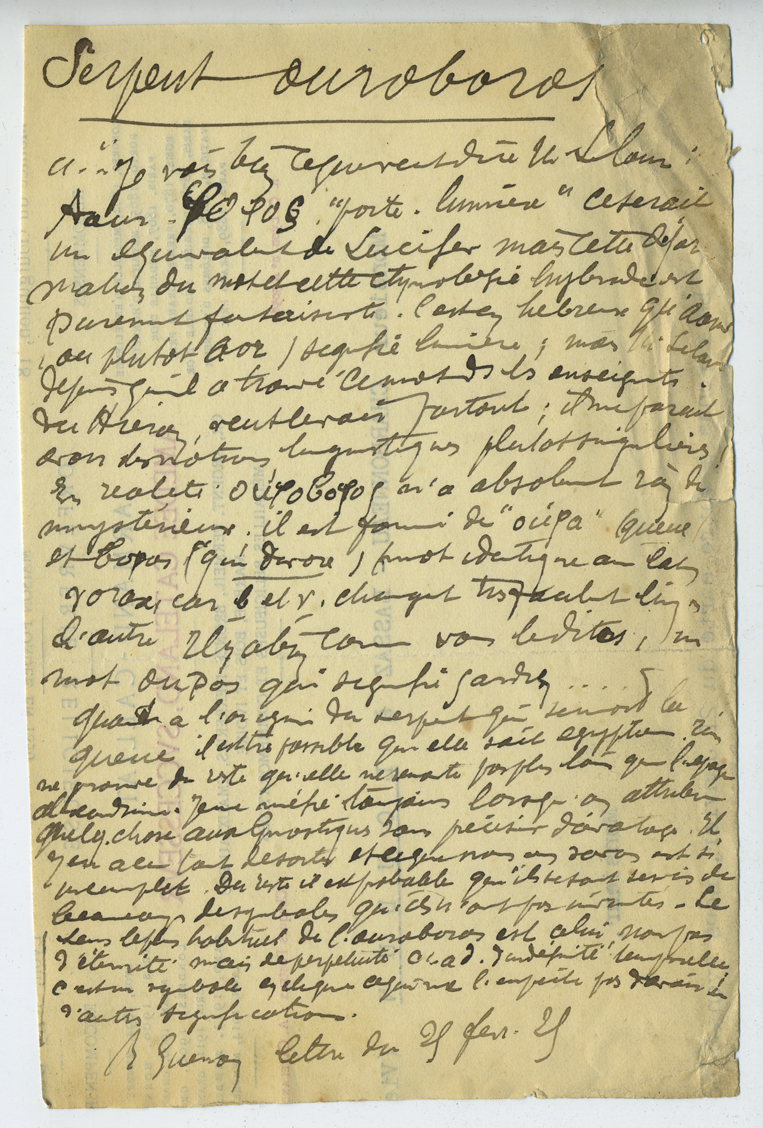 Serpent ouroboros
a. : Je vois bien ce que veut dire Mr
Aour - φορος. "porte - lumière" ce serait
un equivalent de Lucifer mais cette defor
mation du mot et cette etymologie hybride est
purement fantaisiste. C'est en hebreux qu'aour
( ou plutot aor ) signifie lumière ; mais Mr
depuis qu'il a trouvé ce mot ds les enseignts
du Hieron, veut le voir partout ; il me parait
avoir des notions linguistiques plutot singulières.
En realité ουροβορος n'a absolumt rien de
mysterieux. il est formé de "ουρα" (queue)
et βορος ("qui devore") (mot identique au latin
vorax, car b et v. changent très facilemt
d'autre Il y a bien comme vous le dites, un
mot ουρος qui signifie gardien .....
quant a l'origine du serpent qui se mord la
queue il est tres possible que elle soit egyptienne. rien
ne prouve du reste qu'elle ne remonte pas plus loin que l'epoque
alexandrine. Je me méfie toujours lorsqu'on attribue
quelq. chose aux Gnostiques sans préciser davantage. Il
y en a eu tant de sortes et ce que nous en savons est si
incomplet. Du reste il est probable qu'ils se sont servis de
beaucoup de symboles qu'ils n'ont pas inventés - Le
sens le plus habituel de l'ouroboros est celui, non pas
d'éternité mais de perpétuité c. a d. d'indéfinité temporelle
c'est un symbole cyclique ce qui ne l'empêche pas d'avoir
d'autres significations.
R Guenon lettre du 25 fevr. 25